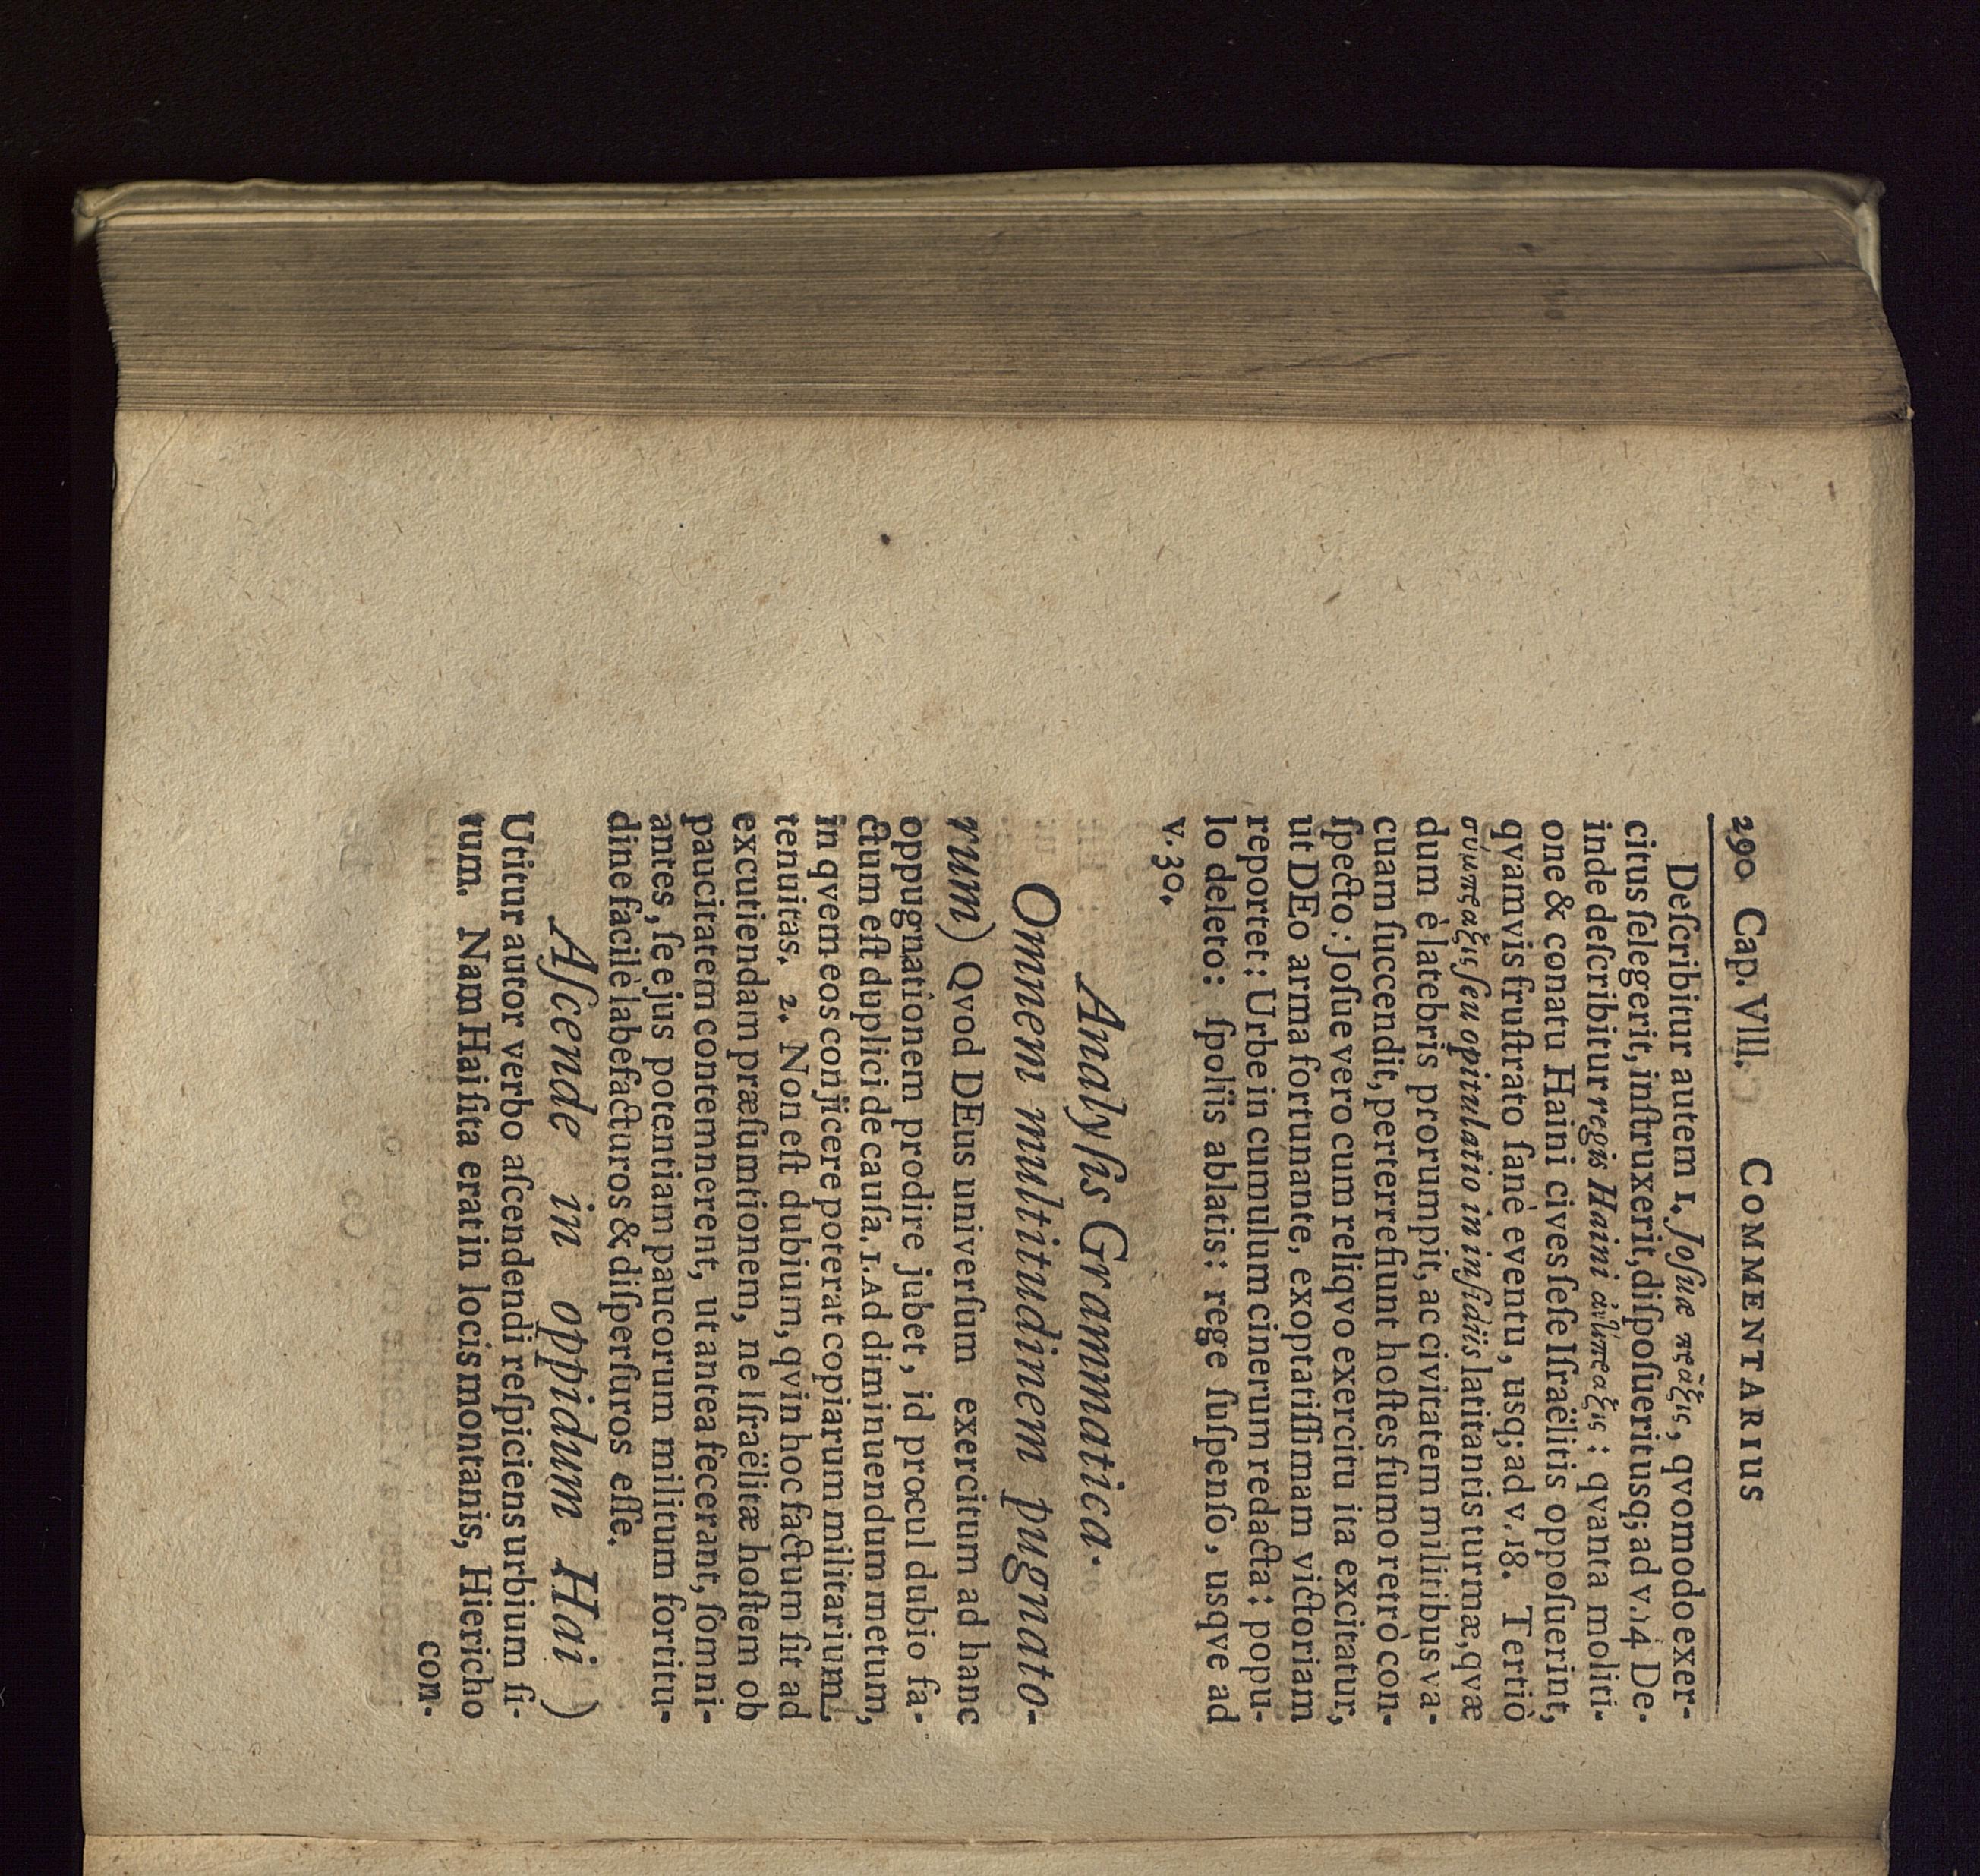 290 Cap. VIII. COMMENTARIUS
Deſcribitur autem 1. Joſuæ πρᾶξις, qvomodo exer-
citus ſelegerit, inſtruxerit, diſpoſueritusq; ad v. 14 De-
inde deſcribitur regis Haini ἀντίπραξις: qvanta moliti-
one & conatu Haini cives ſeſe Iſraëlitis oppoſuerint,
qvamvis fruſtrato ſanè eventu, usq; ad v. 18. Tertiò
σύμπραξις ſeu opitulatio in inſidiis latitantis turmæ, qvæ
dum è latebris prorumpit, ac civitatem militibus va-
cuam ſuccendit, perterrefiunt hoſtes fumo retrò con-
ſpecto: Joſue vero cum reliqvo exercitu ita excitatur,
ut DEo arma fortunante, exoptatiſſimam victoriam
reportet: Urbe in cumulum cinerum redacta: popu-
lo deleto: ſpoliis ablatis: rege ſuſpenſo, usqve ad
v. 30.
Analyſis Grammatica.
Omnem multitudinem pugnato-
rum) Qvod DEus univerſum exercitum ad hanc
oppugnationem prodire jubet, id procul dubio fa-
ctum eſt duplici de cauſa. 1. Ad diminuendum metum,
in qvem eos conjicere poterat copiarum militarium
tenuitas. 2. Non eſt dubium, qvin hoc factum ſit ad
excutiendam præſumtionem, ne Iſraëlitæ hoſtem ob
paucitatem contemnerent, ut antea fecerant, ſomni-
antes, ſe ejus potentiam paucorum militum fortitu-
dine facilè labefacturos & diſperſuros eſſe.
Aſcende in oppidum Hai)
Utitur autor verbo aſcendendi reſpiciens urbium ſi-
tum. Nam Hai ſita erat in locis montanis, Hiericho
con-